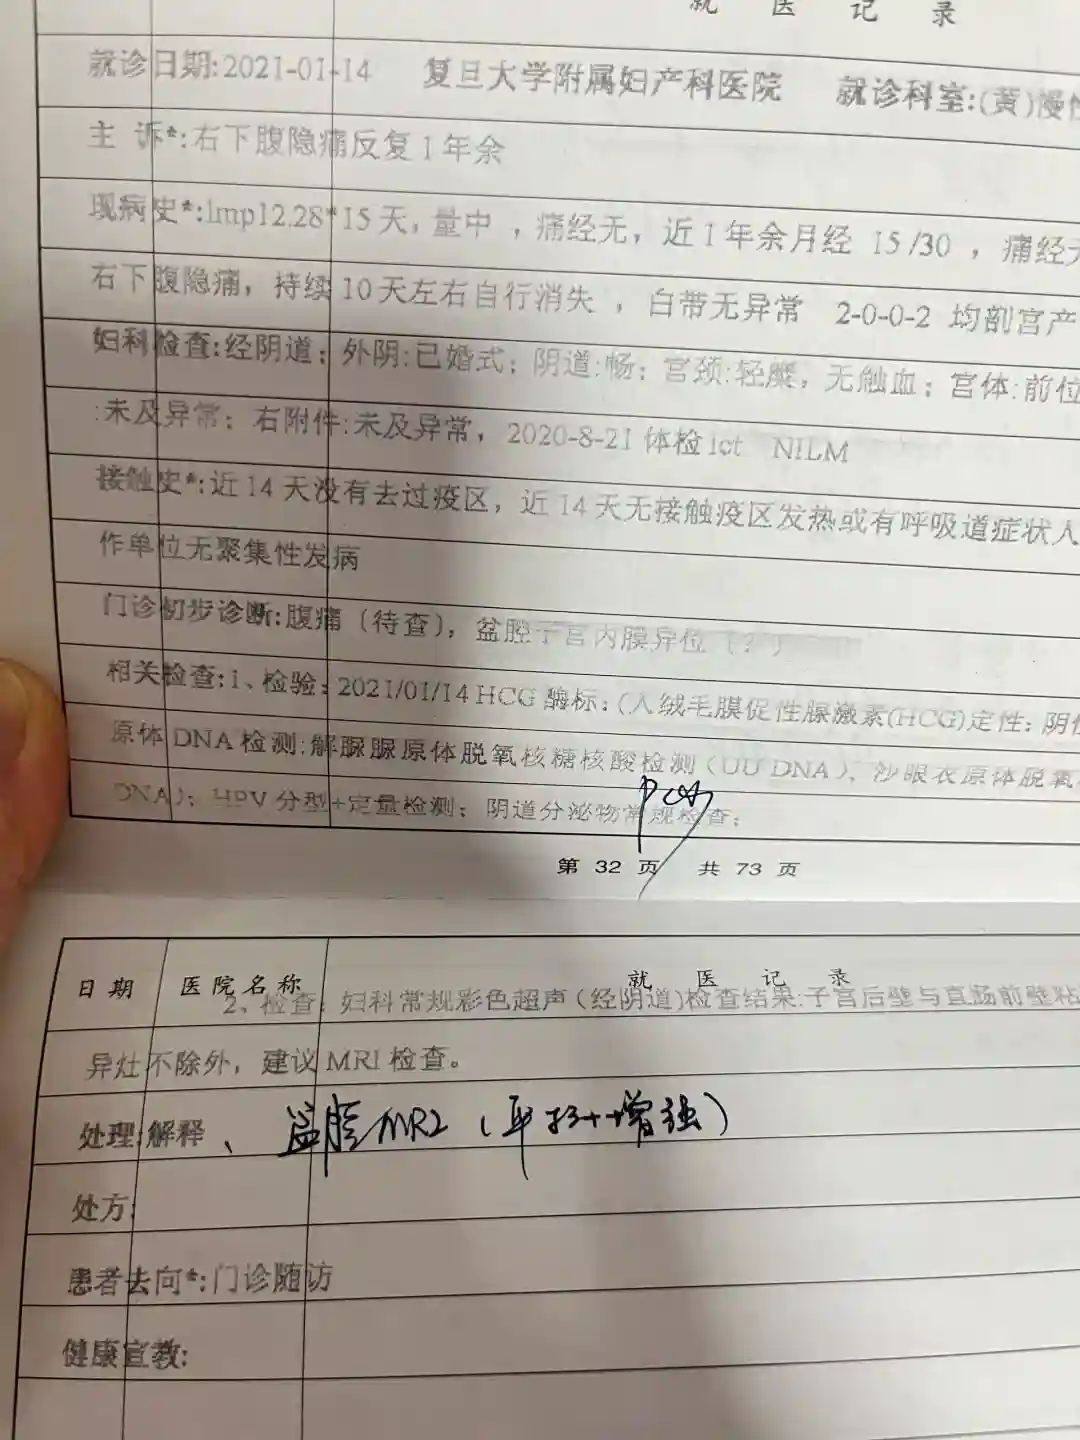 就 医 记 录
就诊日期:2021-01-14 复旦大学附属妇产科医院 就诊科室:(黄)慢性
主 诉*:右下腹隐痛反复1年余
现病史*:lmp12.28*15天，量中 ，痛经无，近1年余月经 15/30 ，痛经无
右下腹隐痛，持续10天左右自行消失 ，白带无异常 2-0-0-2 均剖宫产
妇科检查:经阴道；外阴:已婚式；阴道:畅；宫颈:轻糜，无触血；宫体:前位
:未及异常；右附件:未及异常，2020-8-21体检lct NILM
接触史*:近14天没有去过疫区，近14天无接触疫区发热或有呼吸道症状人
作单位无聚集性发病
门诊初步诊断:腹痛（待查），盆腔子宫内膜异位（？）
相关检查:1、检验：2021/01/14 HCG酶标：(人绒毛膜促性腺激素(HCG)定性：阴性
原体DNA检测:解脲脲原体脱氧核糖核酸检测（UU DNA)，沙眼衣原体脱氧
DNA)；HPV分型+定量检测；阴道分泌物常规检查；
第 32 页 共 73 页
日期 医院名称 就 医 记 录
2、检查：妇科常规彩色超声（经阴道)检查结果:子宫后壁与直肠前壁粘
异灶不除外，建议MRI检查。
处理:解释、盆腔MRI（平扫+增强）
处方:
患者去向*:门诊随访
健康宣教: